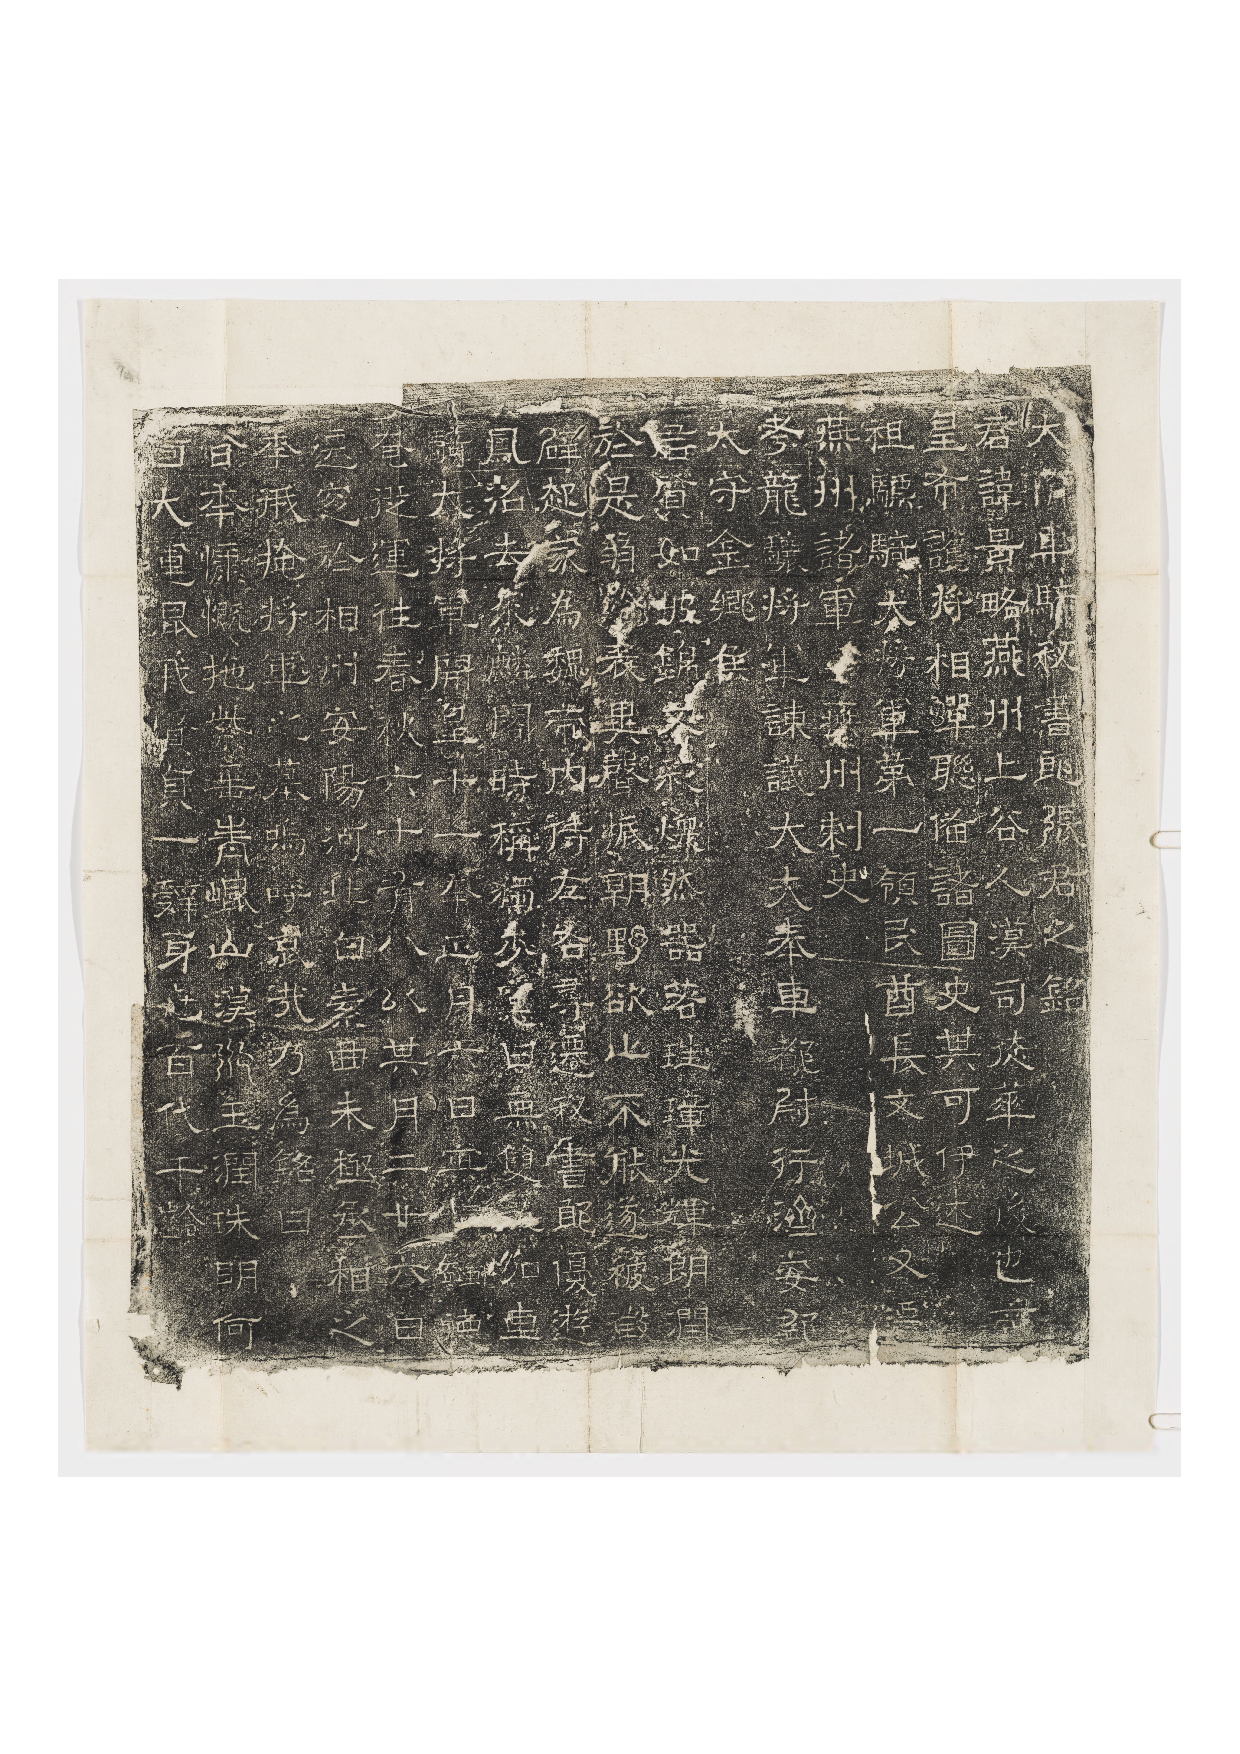 大隋車騎秘書郎張君之銘
君諱景略燕州上谷人漢司徒華之後也
皇布護將相蟬聯備諸圖史其可伊述
祖驃騎大將軍第一領民酋長文城公又遷
燕州諸軍事燕州刺史
考龍驤將軍諫議大夫奉車都尉行濟安郡
太守金鄉侯
君質如披錦文彩爛然器若珪璋光輝朗潤
於是羽儀表異聲振朝野欲止不能遂被敦
辟起家為魏帝內侍左右尋遷秘書郎優遊
鳳沼去來麟閣時稱獨步寔曰無雙加車
騎大將軍開皇十一年正月六日
奄從運往春秋六十有八以其月二廿六日
遷窂於相州安陽河北白素曲未極丞相之
奉將軍之墓嗚呼哀哉乃為銘曰
奉慷慨地紫垂青崐山漢水玉潤珠明何
大運貞一辭身百代千齡